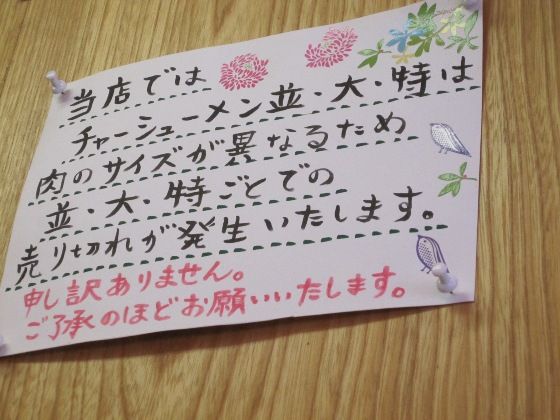 当店では
チャーシューメン並・大・特は
肉のサイズが異なるため
並・大・特ごとでの
売り切れが発生いたします。
申し訳ありません。
ご了承のほどお願いいたします。